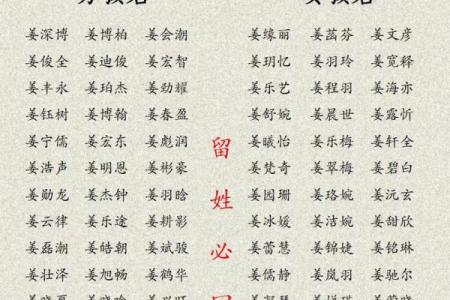 姜深博 姜博柏 姜会潮
姜俊全 姜迪俊 姜宏智
姜丰永 姜珀杰 姜劲耀
姜钰树 姜博翰 姜春盈
姜宁儒 姜宏东 姜彪润
姜浩声 姜明恩 姜彬豪
姜勋龙 姜杰钟 姜羽晗
姜云律 姜乐途 姜耕影
姜磊潮 姜皓朝 姜斌骏
姜壮泽 姜旭畅 姜鹤华
留姓必
姜缘丽 姜蕊芬 姜文彦
姜玥忆 姜羽玲 姜宽释
姜乐艺 姜程羽 姜海亦
姜舒婉 姜晨世 姜露忻
姜曦怡 姜乐梅 姜轩全
姜梵奇 姜翠梅 姜碧白
姜园珊 姜珞婉 姜沅玄
姜冰媛 姜洁婉 姜甜欣
姜蕾慧 姜锦婕 姜铭琳
姜儒静 姜岚羽 姜驰尔